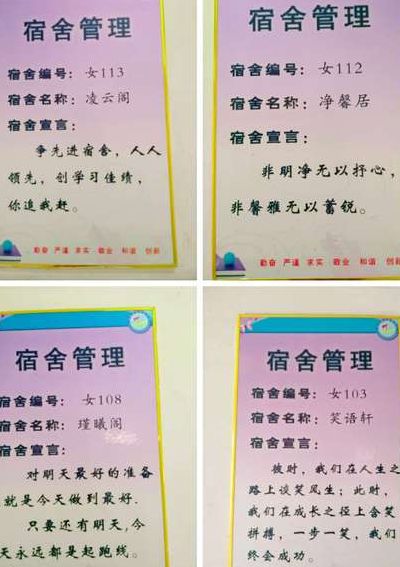 宿舍管理
宿舍编号：女113
宿舍名称：凌云阁
宿舍宣言：
争先进宿舍，人人
领先，创学习佳绩，
你追我赶。
勤奋 严谨 求实 敬业 和谐 创新
宿舍管理
宿舍编号：女112
宿舍名称：净馨居
宿舍宣言：
非明净无以抒心，
非馨雅无以蓄锐。
勤奋 严谨 求实 敬业 和谐 创新
宿舍管理
宿舍编号：女108
宿舍名称：瑾曦阁
宿舍宣言：
对明天最好的准备
就是今天做到最好.
只要还有明天,今
天永远都是起跑线。
宿舍管理
宿舍编号：女103
宿舍名称：笑语轩
宿舍宣言：
彼时，我们在人生之
路上谈笑风生；此时，
我们在成长之径上含笑
拼搏，一步一笑，我们
终会成功。